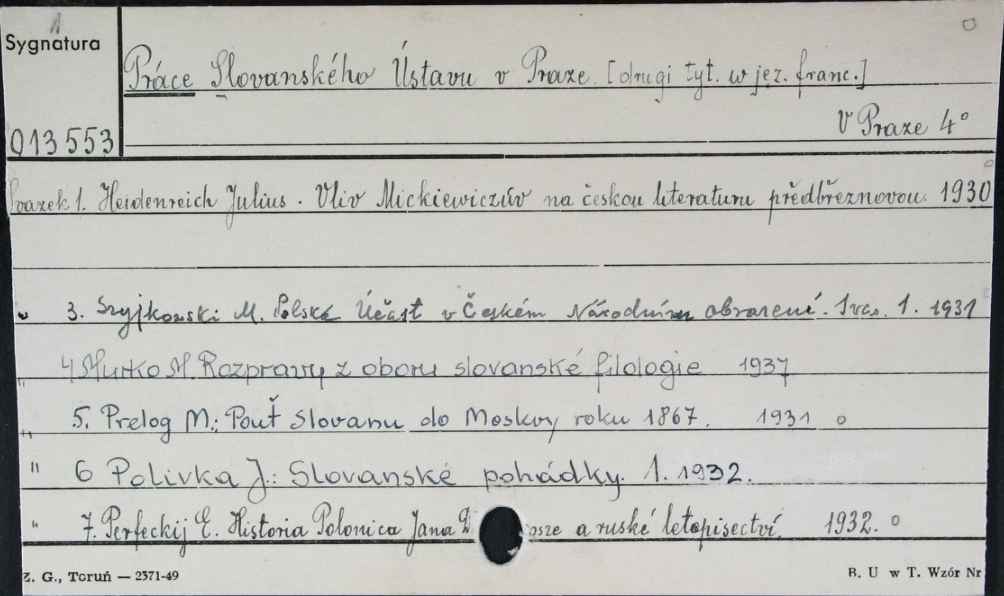 Sygnatura
Práce Slovanského Ústavu v Praze. [drugi tyt. w jęz. franc.]
013553 V Praze 4°
Svazek 1. Heidenreich Julius. Vliv Mickiewiczův na českou literaturu předbřeznovou. 1930
" 3. Szyjkowski M. Polská Účast v Českém Národním obrození. 1. 1931
" 4 Murko M. Rozpravy z oboru slovanské filologie 1937
" 5. Prelog M.: Pouť Slovanu do Moskvy roku 1867. 1931 o
" 6 Polivka J.: Slovanské pohádky. 1. 1932.
" 7. Perfeckij E. Historia Polonica Jana a ruské letopisectví. 1932. o
Z. G., Toruń — 2371-49 B. U w T. Wzór Nr